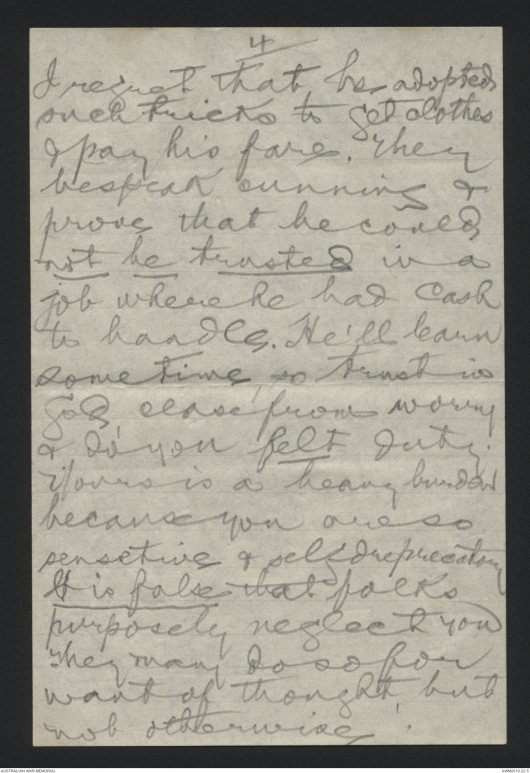 4
I regret that he adopted
such tricks to get clothes
& pay his fare. They
bespeak cunning &
prove that he could
not be trusted in a
job where he had cash
to handle. He'll learn
sometime, so trust in
God, cease from worry
& do you felt duty.
Yours is a heavy burden
because you are so
sensetive & self depreccatory
It is false that folks
purposely neglect you
They may do so for
want of thought but
not otherwise.
AUSTRALIAN WAR MEMORIAL